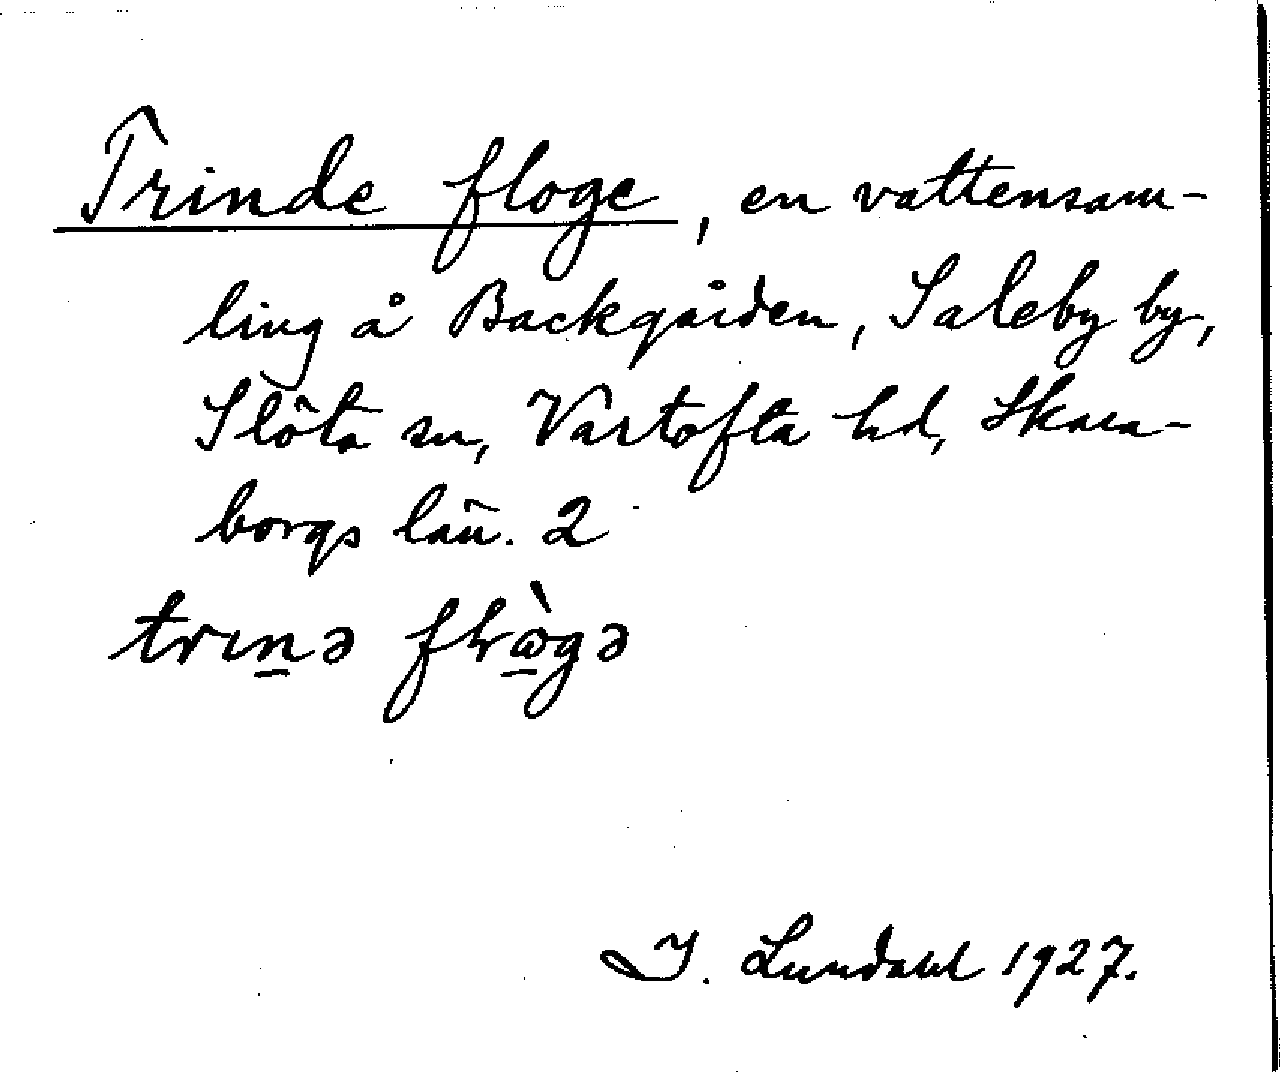 Trinde floge, en vattensam-
ling å Backgården, Saleby by,
Slöta sn, Vartofta hd, Skara-
borgs län. 2
trın̲ə
I. Lundahl 1927.